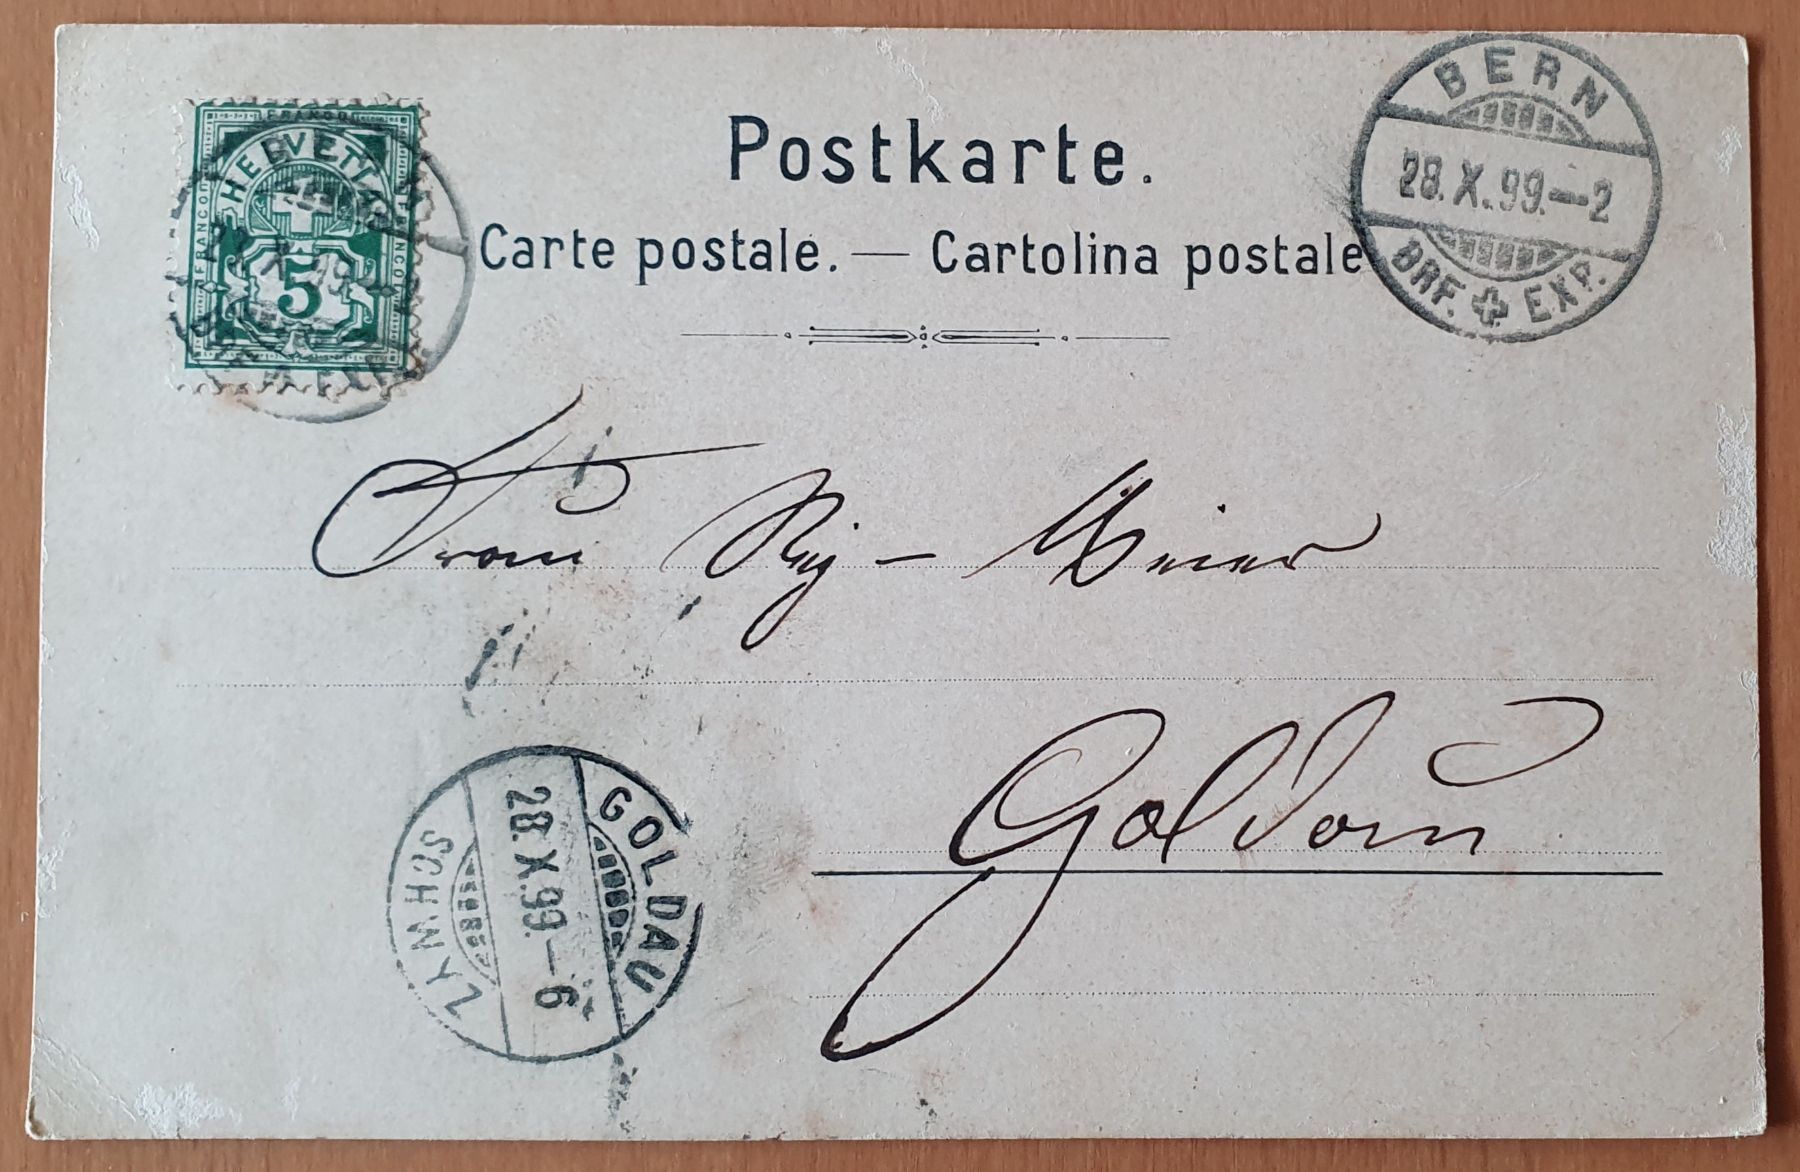 FRANCO
HELVETIA
FRANCO
FRANCO
5
Postkarte.
Carte postale. — Cartolina postale
BERN
28.X.99.—2
BRF. EXP.
Frau Rij – Meier
Goldau
GOLDAU
28.X.99.—6
SCHWYZ